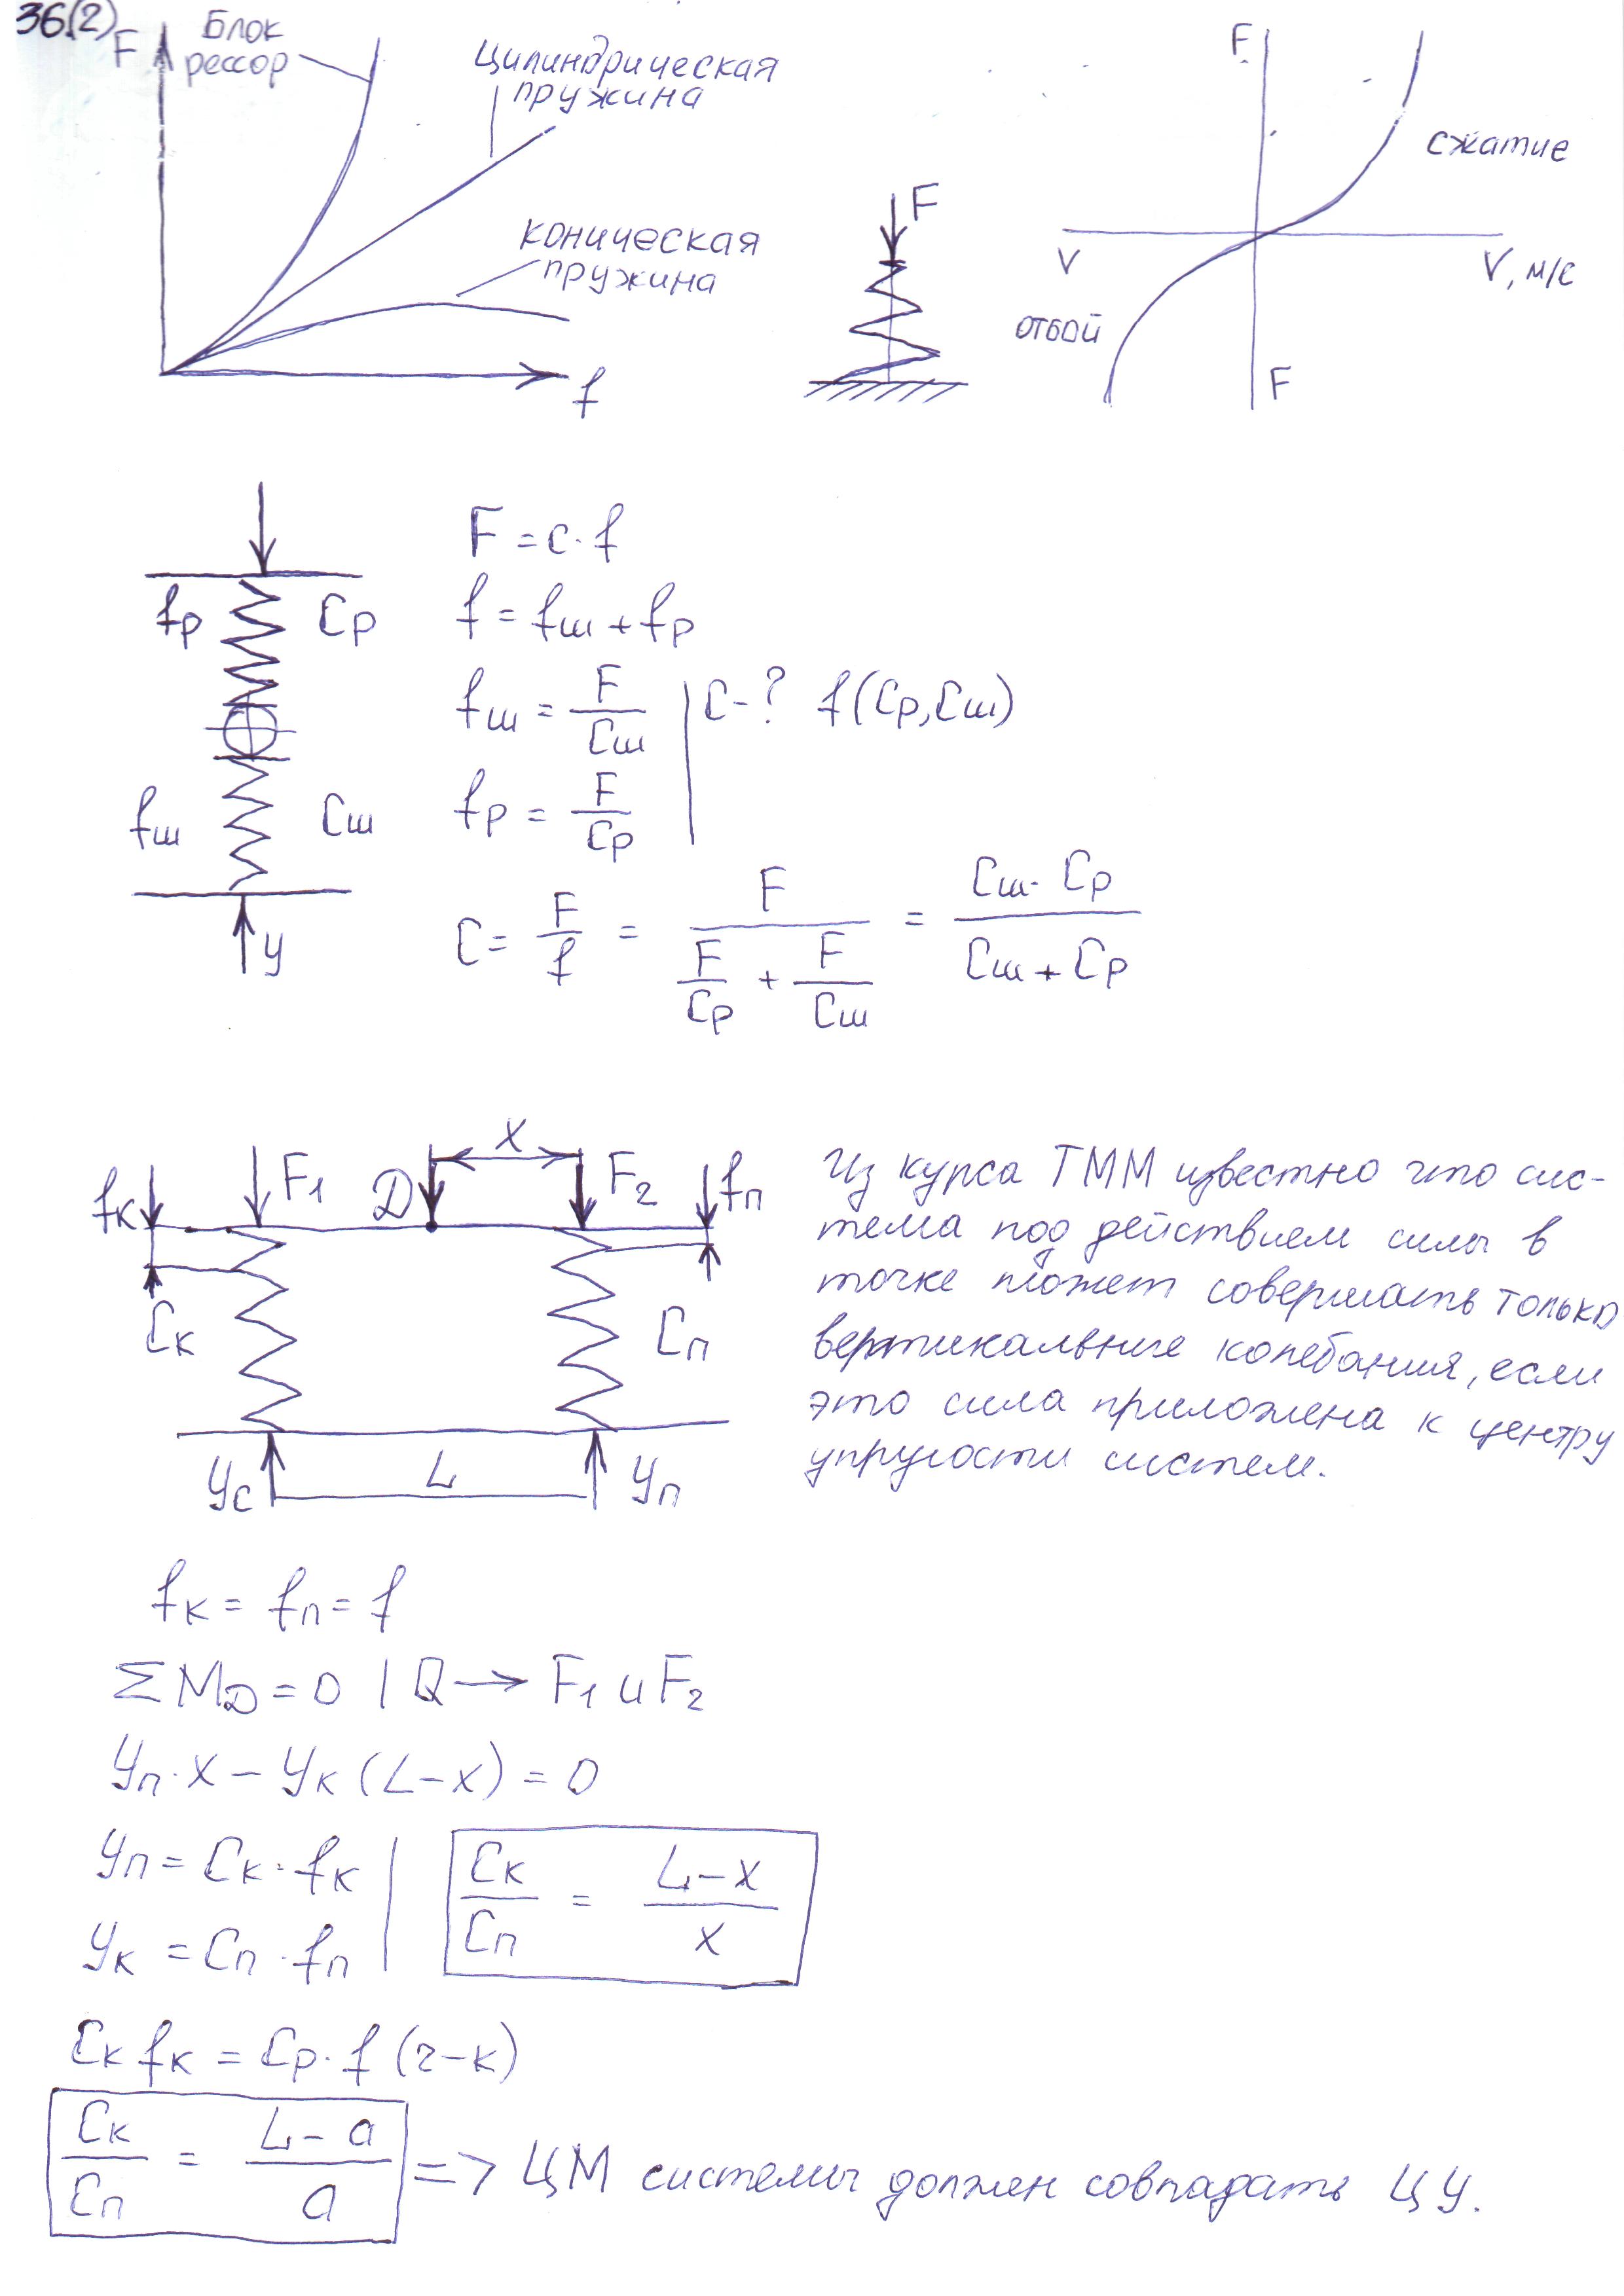 36.(2)
F
Блок
рессор
Цилиндрическая
пружина
коническая
пружина
f
F
F
сжатие
V
V, м/с
отбой
F
fр
Cр
fш
Cш
У
F = c · f
f = fш + fр
fш = F/Cш
C - ? f(Cр, Cш)
fр = F/Cр
C = F/f = F/(F/Cр + F/Cш) = Cш · Cр/(Cш + Cр)
fк
F1
Д
X
F2
fп
Cк
Cп
Ус
L
Уп
Из курса ТММ известно что сис-
тема под действием силы в
точке может совершать только
вертикальные колебания, если
это сила приложена к центру
упругости систем.
fк = fп = f
ΣMД = 0 | Q → F1 и F2
Уп · X – Ук (L – x) = 0
Уп = Cк · fк
Ук = Cп · fп
Cк/Cп = L – x/x
Cк fк = Cр · f (г – к)
Cк/Cп = L – a/a => ЦМ системы должен совпадать ЦУ.